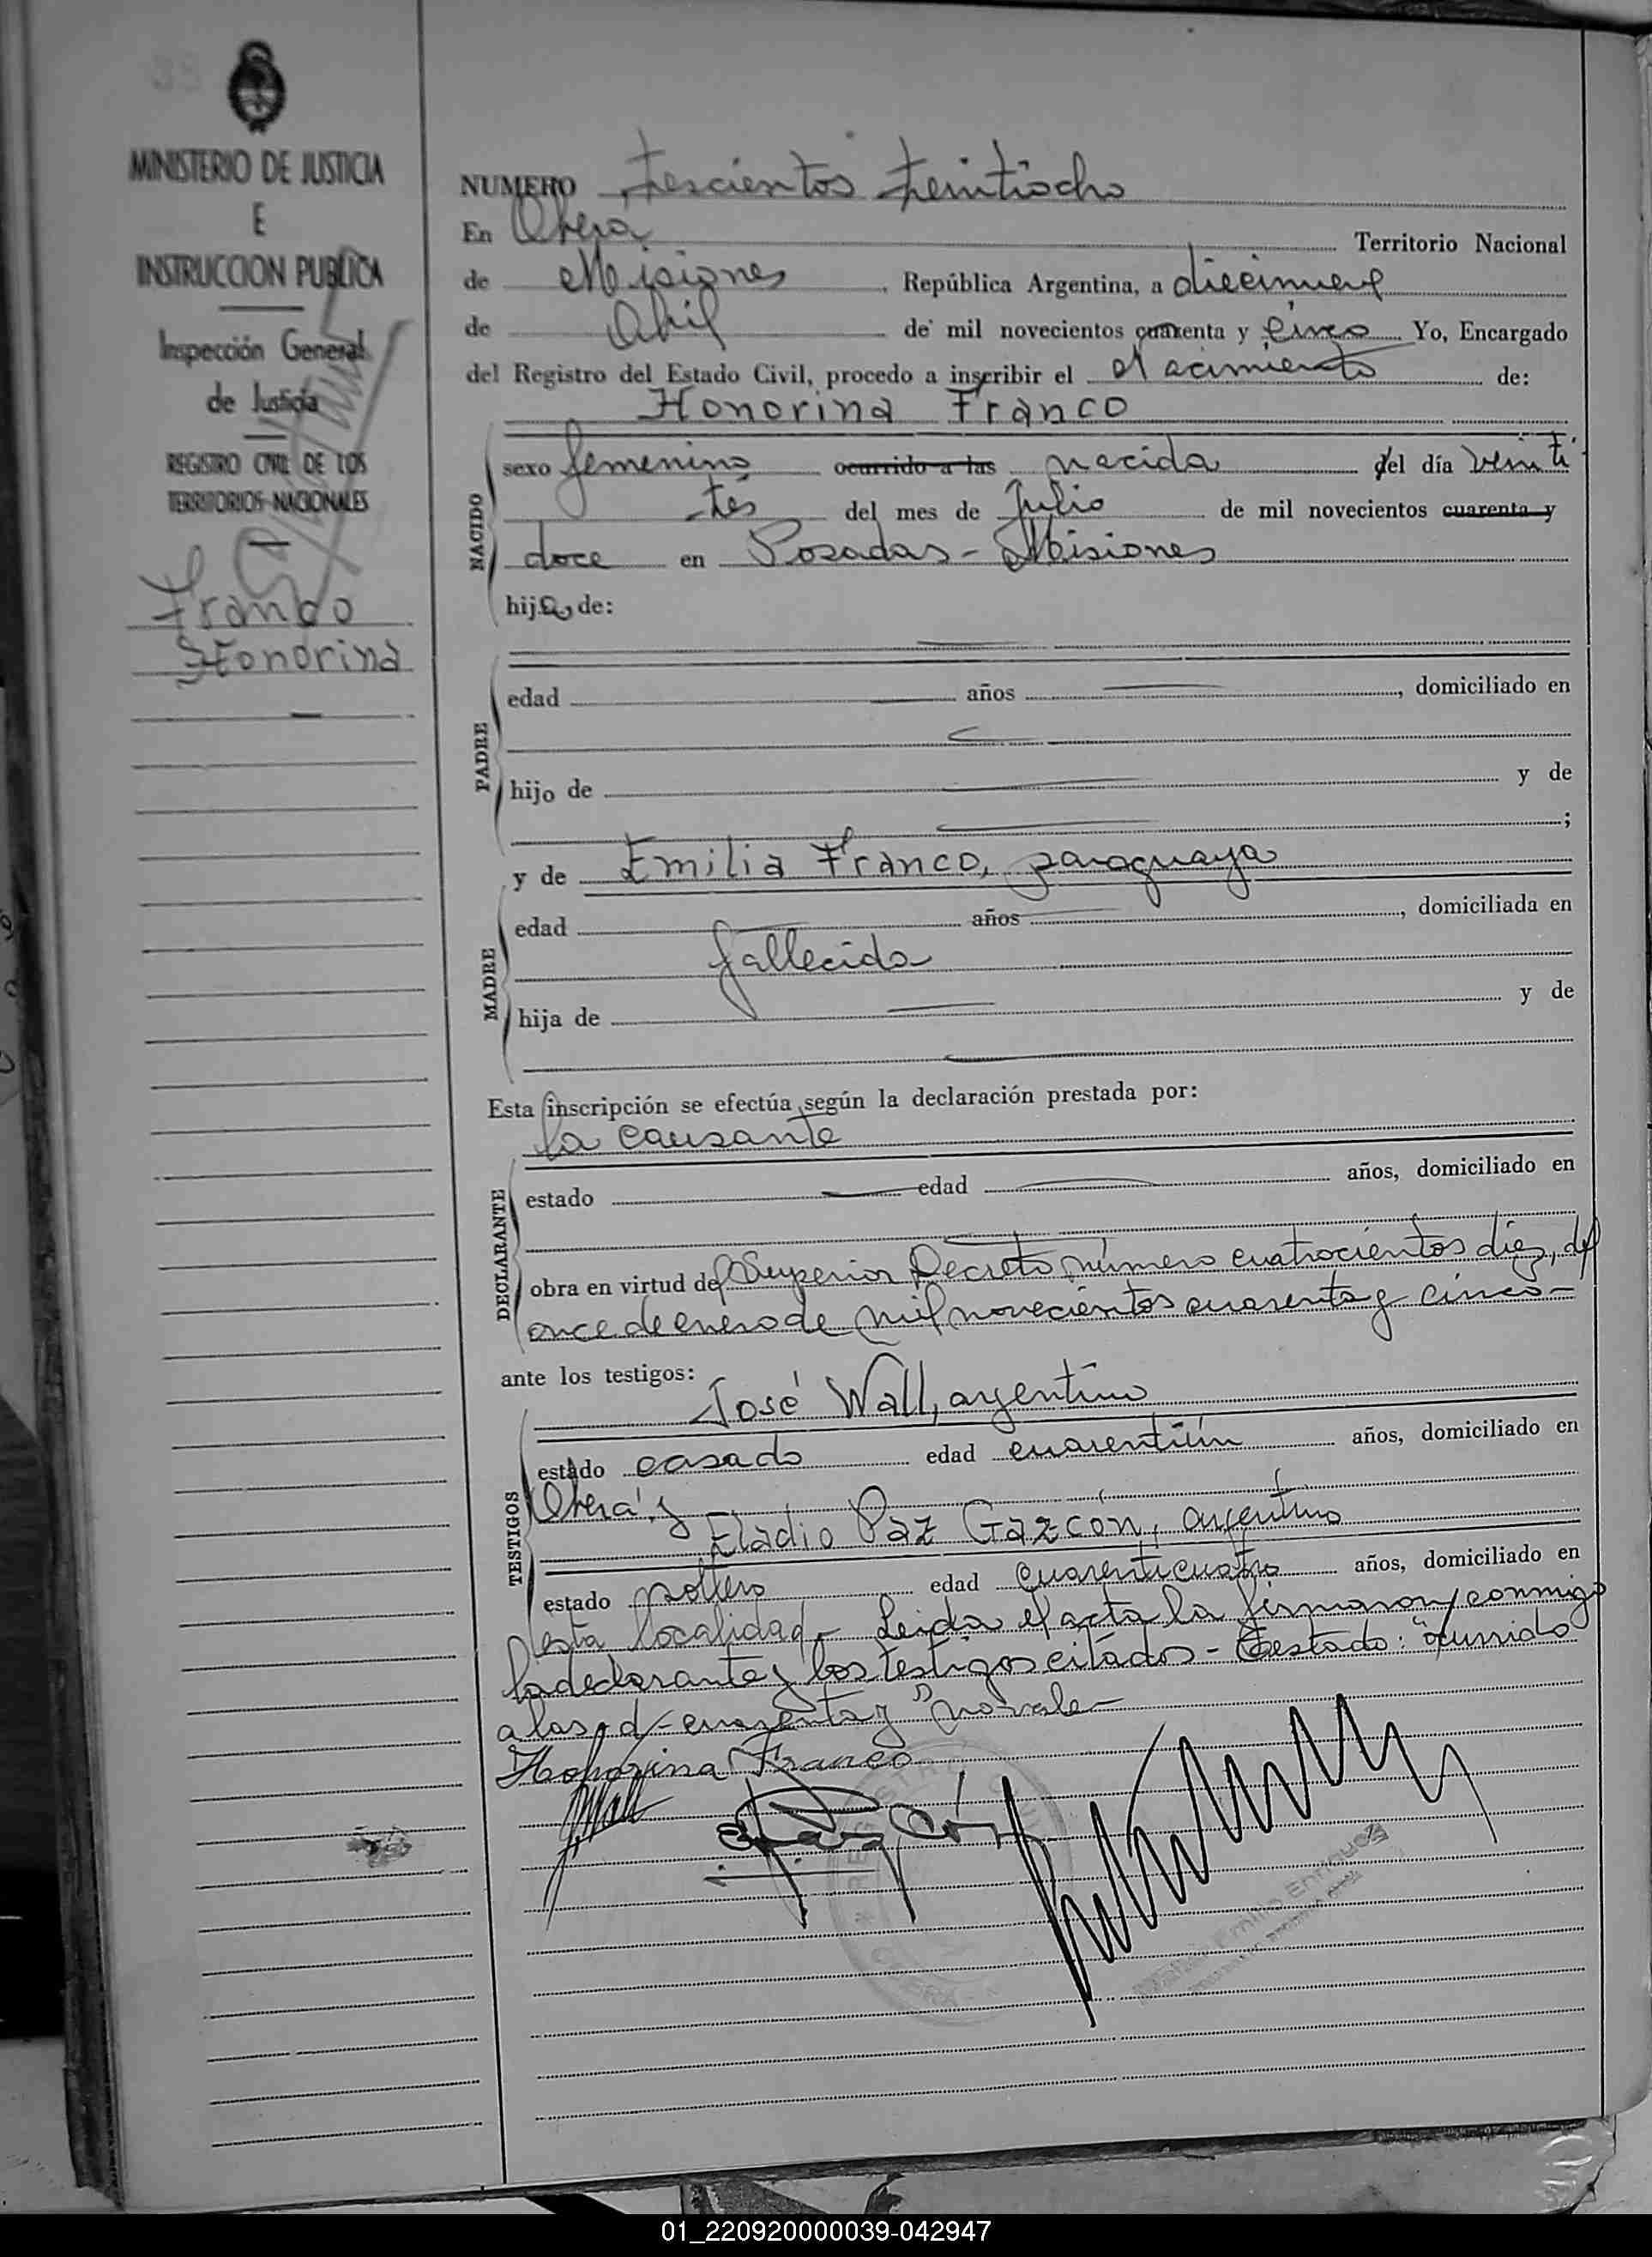 MINISTERIO DE JUSTICIA
E
INSTRUCCION PUBLICA
Inspección General
de Justicia
REGISTRO CIVIL DE LOS
TERRITORIOS NACIONALES
Franco
Honorina
NUMERO Trescientos treintiocho
En Oberá Territorio Nacional
de Misiones, República Argentina, a diecinueve
de Abril de mil novecientos cuarenta y cinco Yo, Encargado
del Registro del Estado Civil, procedo a inscribir el Nacimiento de:
Honorina Franco
NACIDO
sexo femenino ocurrido a las nacida del día veinti
trés del mes de Julio de mil novecientos cuarenta y
doce en Posadas - Misiones
hija de:
PADRE
edad años, domiciliado en
hijo de y de
;
y de Emilia Franco, paraguaya
MADRE
edad años, domiciliada en
fallecida
hija de y de
Esta inscripción se efectúa según la declaración prestada por:
la causante
DECLARANTE
estado edad años, domiciliado en
obra en virtud del Superior Decreto número cuatrocientos diez, del
once de enero de mil novecientos cuarenta y cinco -
ante los testigos:
José Wall, argentino
TESTIGOS
estado casado edad cuarentiún años, domiciliado en
Oberá y
Eladio Paz Gazcón, argentino
estado soltero edad cuarenticuatro años, domiciliado en
esta localidad - Leida el acta la firmaron conmigo
la declarante y los testigos citados - Testado: "ocurrido
a las - d - cuarenta y" no vale -
Honorina Franco
JWall
REGISTRO
OBERA
Emilio Enriquez
01_220920000039-042947